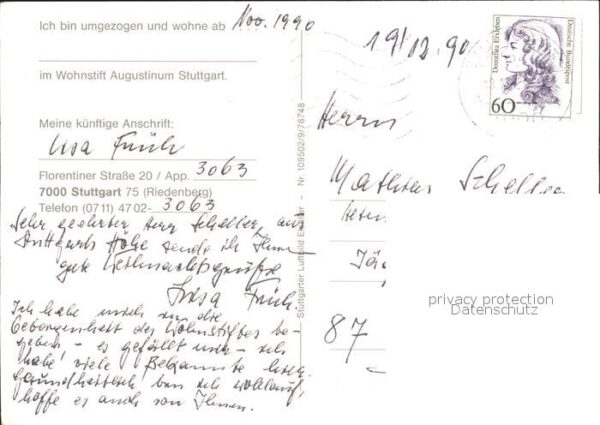 Ich bin umgezogen und wohne ab Nov. 1990
im Wohnstift Augustinum Stuttgart.
Meine künftige Anschrift:
Lisa Früh
Florentiner Straße 20 / App. 3063
7000 Stuttgart 75 (Riedenberg)
Telefon (07 11) 47 02- 3063
Sehr geehrter Herr Scheller, aus
Stuttgarts Höhe sende ich Ihnen
gute Weihnachtsgrüße
Lisa Früh.
Ich habe mich in die
Geborgenheit des Wohnstiftes be-
geben - es gefällt mir - ich
habe viele Bekannte hier.
Gesundheitlich bin ich wohlauf,
hoffe es auch von Ihnen.
Stuttgarter Luftbild - Nr. 109502/9/78748
19/12.90
Dorothea Erxleben
Deutsche Bundespost
60
Herrn
Mathias Scheller
87
privacy protection
Datenschutz